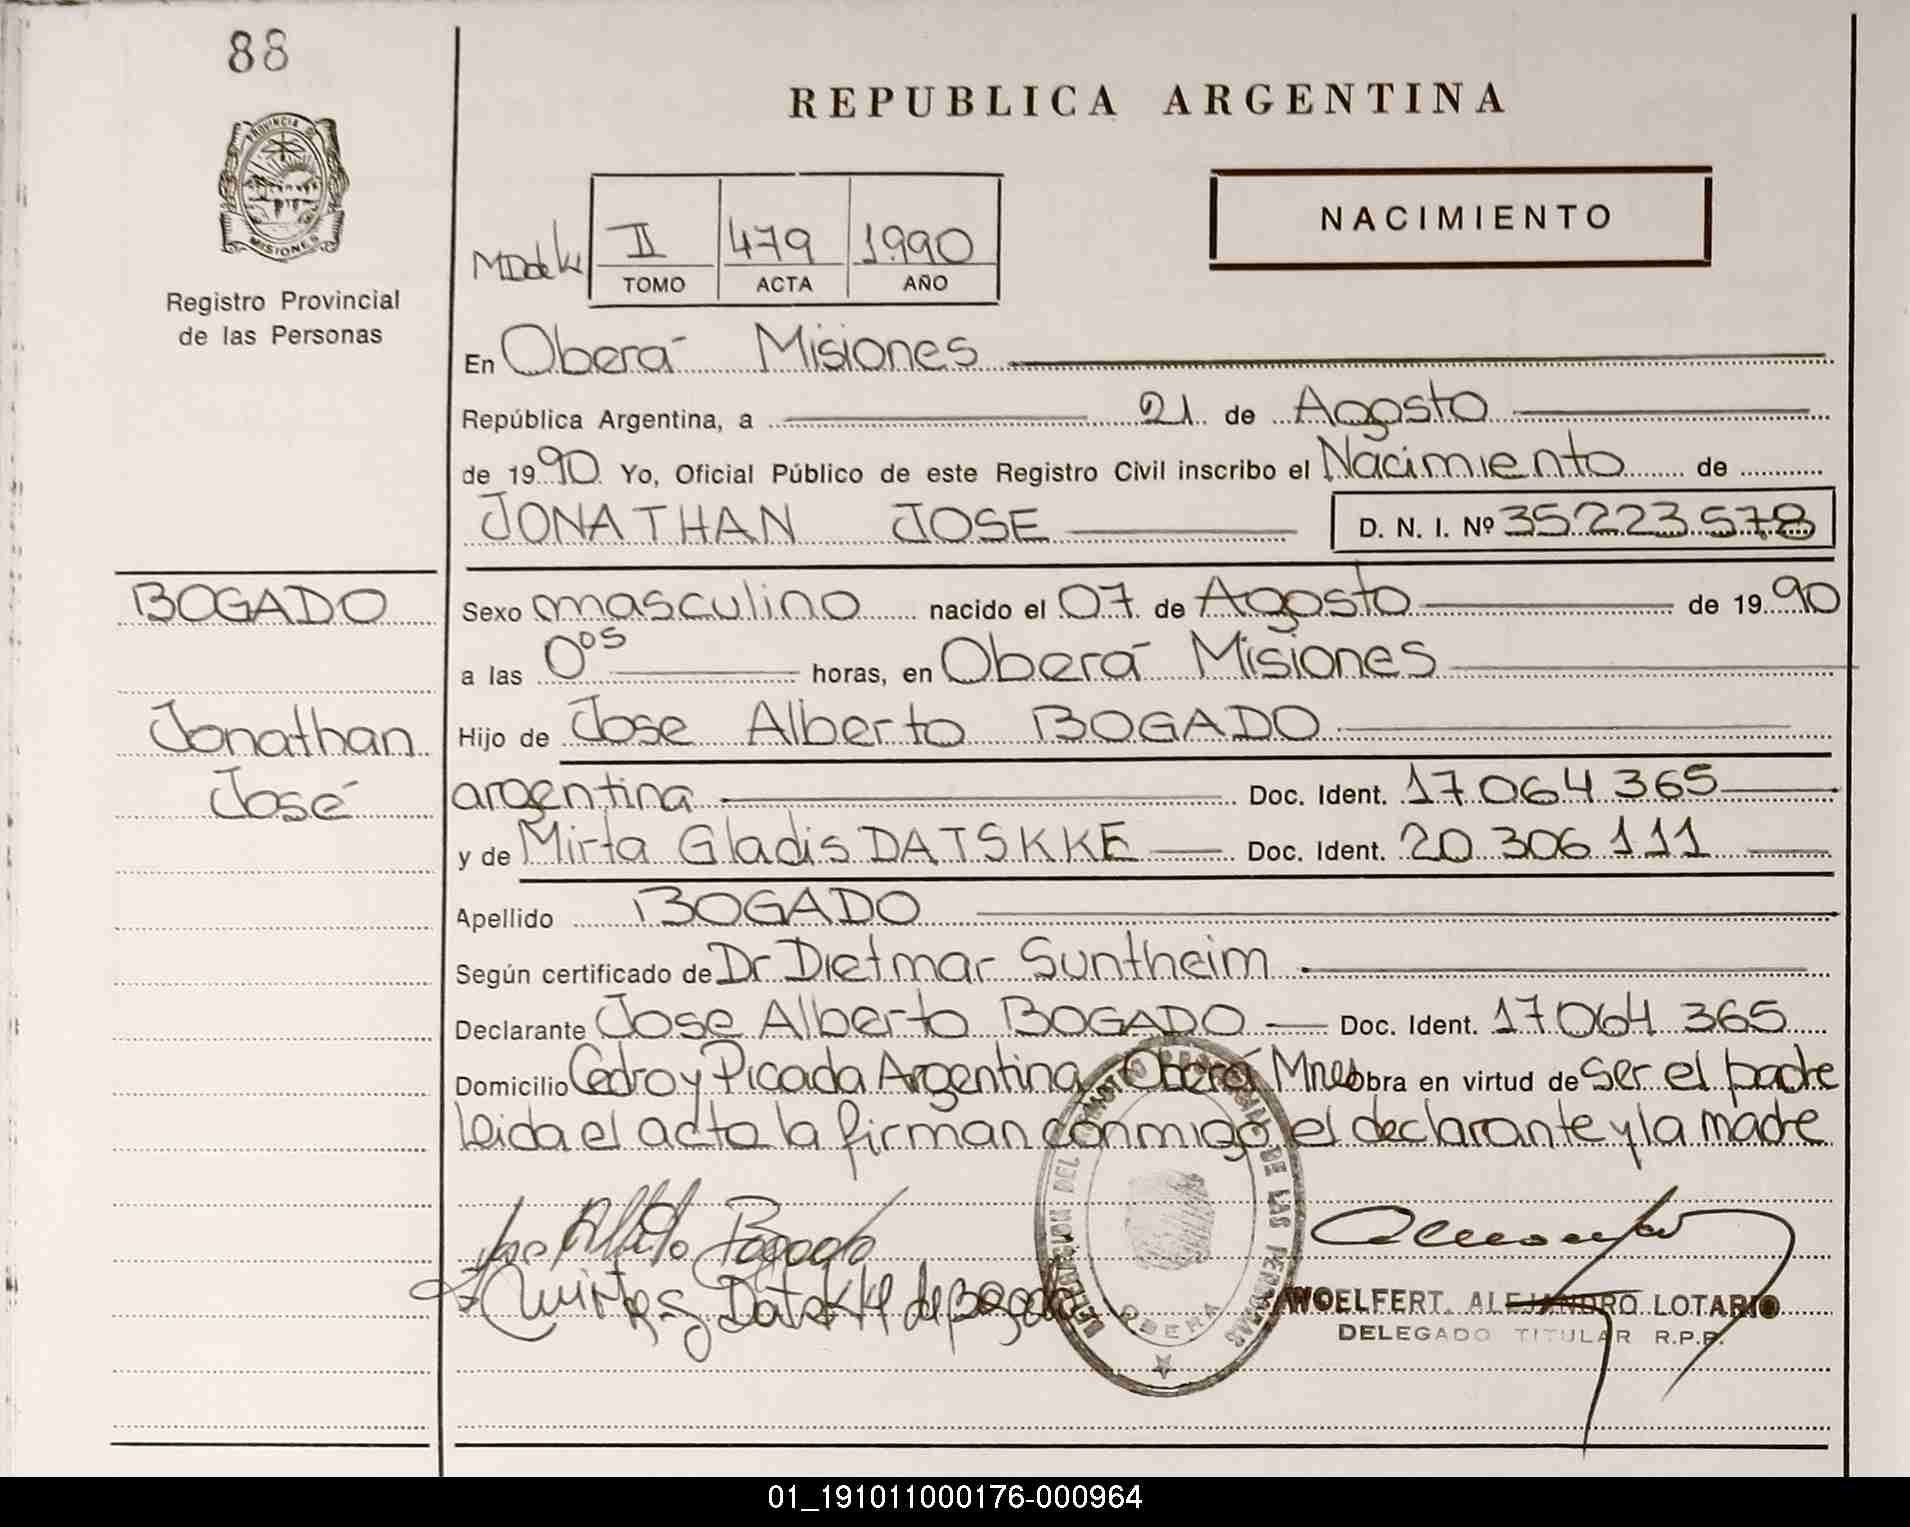 88
PROVINCIA DE
MISIONES
Registro Provincial
de las Personas
REPUBLICA ARGENTINA
NACIMIENTO
II 479 1990
TOMO ACTA AÑO
En Oberá Misiones
República Argentina, a 21 de Agosto
de 1990 Yo, Oficial Público de este Registro Civil inscribo el Nacimiento de
JONATHAN JOSE D. N. I. Nº 35.223.578
BOGADO
Jonathan
José
Sexo masculino nacido el 07 de Agosto de 1990
a las 0⁰⁵ horas, en Oberá Misiones
Hijo de Jose Alberto BOGADO
argentina Doc. Ident. 17.064.365
y de Mirta Gladis DATSKKE Doc. Ident. 20.306.111
Apellido BOGADO
Según certificado de Dr Dietmar Suntheim
Declarante Jose Alberto BOGADO Doc. Ident. 17064365
Domicilio Cedro y Picada Argentina Oberá Mnes obra en virtud de ser el padre
leida el acta la firman conmigo el declarante y la madre
Jose Alberto Bogado
Datskke de Bogado
DE LAS PERSONAS
OBERA
WOELFERT, ALEJANDRO LOTARIO
DELEGADO TITULAR R.P.P.
01_191011000176-000964